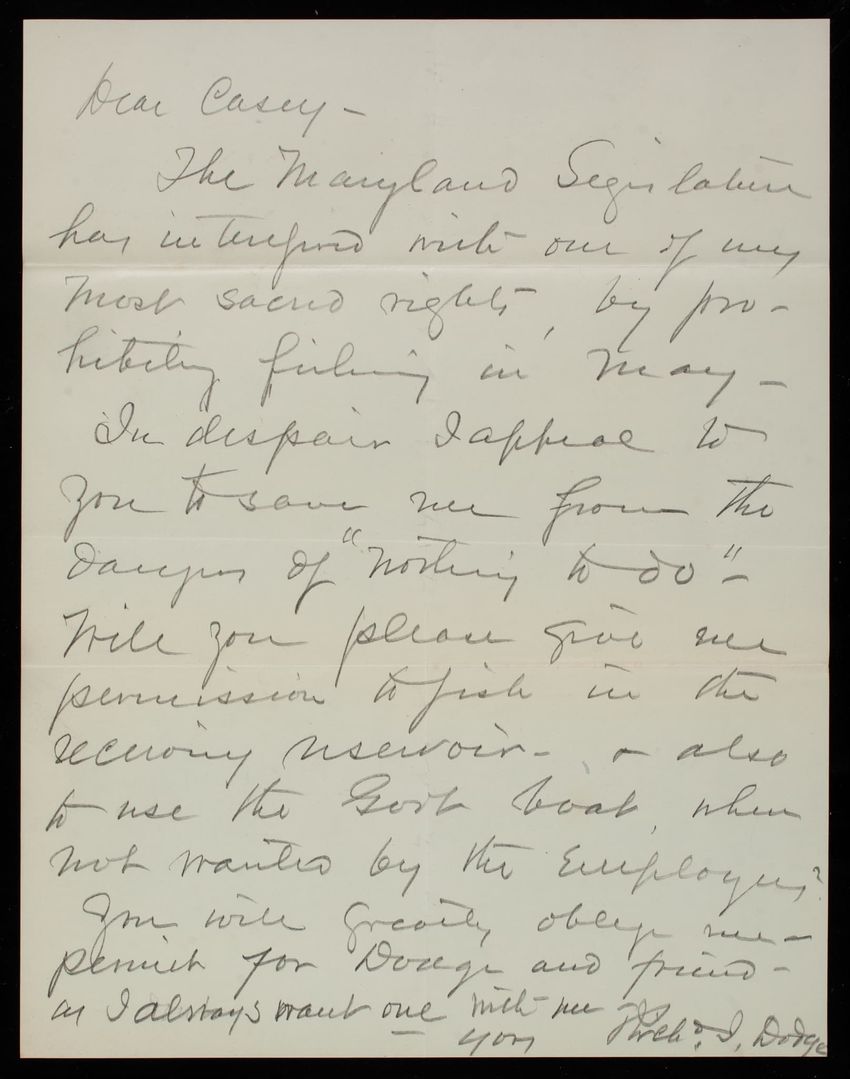 Dear Casey -
The Maryland Legislature
has interfered with one of my
most sacred rights, by pro-
hibiting fishing in May -
In despair I appeal to
you to save me from the
dangers of "nothing to do" -
Will you please give me
permission to fish in the
receiving reservoir - & also
to use the Govt boat, when
not wanted by the Employees?
You will greatly oblige me -
permit for Dodge and friend -
as I always want one with me
Yours Richd. I. Dodge